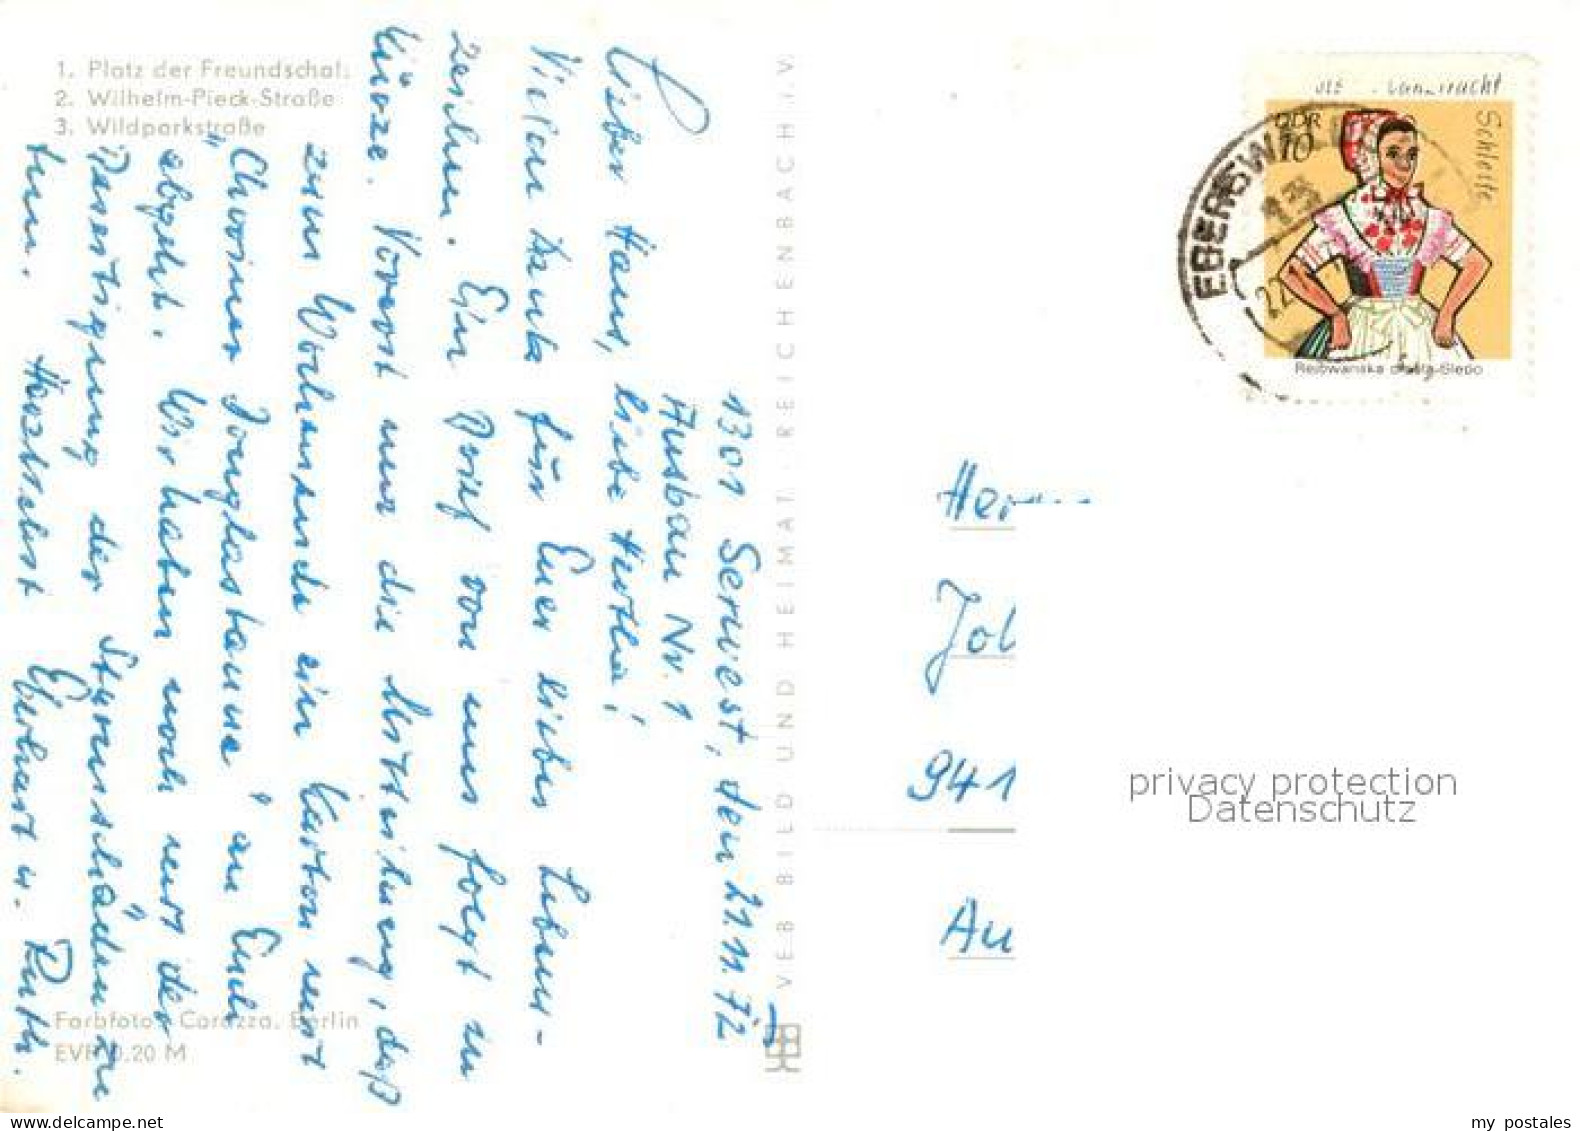 1. Platz der Freundschaf
2. Wilhelm-Pieck-Straße
3. Wildparkstraße
1301 Serwest, den 21.11.72
Ausbau Nr. 1
Lieber Hans, liebe Hertha!
Vielen Dank für Euer liebes Lebens-
zeichen. Ein Brief von uns folgt in
Kürze. Vorerst nur die Mitteilung, daß
zum Wochenende ein Karton mit
"Choriner Douglastanne" an Euch
abgeht. Wir haben noch mit der
Beseitigung der Sturmschäden zu
tun. Herzlichst Eberhard u. Ruth.
Farbfoto: Corazza, Berlin
EVP 0,20 M
VEB BILD UND HEIMAT REICHENBACH I. V.
DDR
10
Schleife
EBERSWALDE
22
Her
Joh
941
Au
privacy protection
Datenschutz
my postales